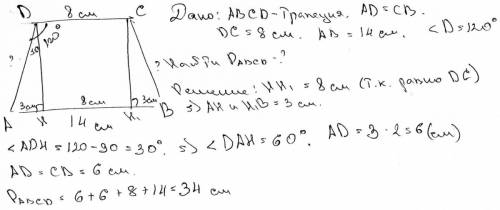 D 8 см C
Дано: ABCD - Трапеция. AD = CB.
DC = 8 см. AB = 14 см. <D = 120°
30 120°
? ?
Найти P ABCD - ?
Решение: HH₁ = 8 см (т.к. равно DC)
=> AH и H₁B = 3 см.
3 см 8 см 3 см
A H H₁ B
14 см
<ADH = 120 - 90 = 30°. => <DAH = 60°. AD = 3 · 2 = 6 (см)
AD = CD = 6 см.
P ABCD = 6 + 6 + 8 + 14 = 34 см